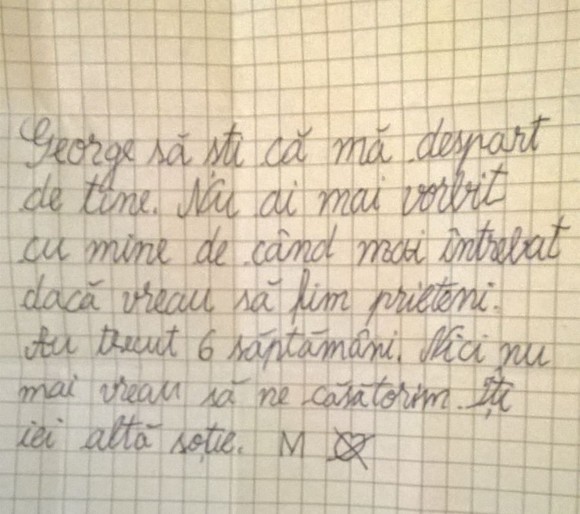 George să ști că mă despart
de tine. Nu ai mai vorbit
cu mine de când mai întrebat
dacă vreau să fim prieteni.
Au trecut 6 săptămâni. Nici nu
mai vreau să ne căsătorim. Îți
iei altă soție. M